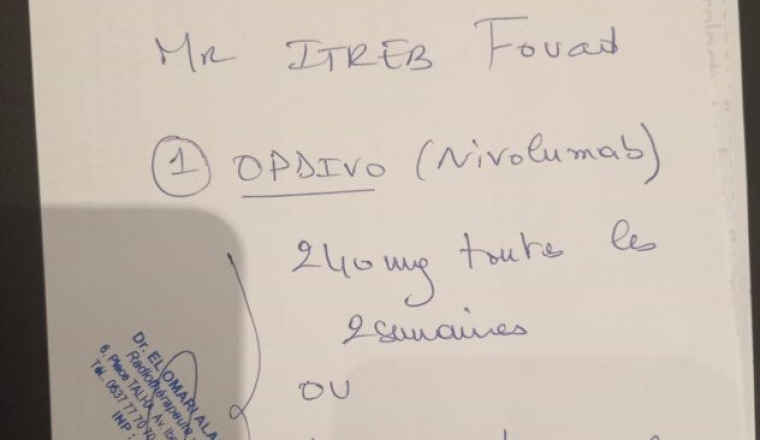 Mr ITREB Fouad
① OPDIVO (Nivolumab)
240mg toutes les
2 semaines
OU
Dr. EL OMARI ALA
Radiothérapeute
6, Place TALHA, Av. Ib
Tél. 0537 77 70 70
INP :